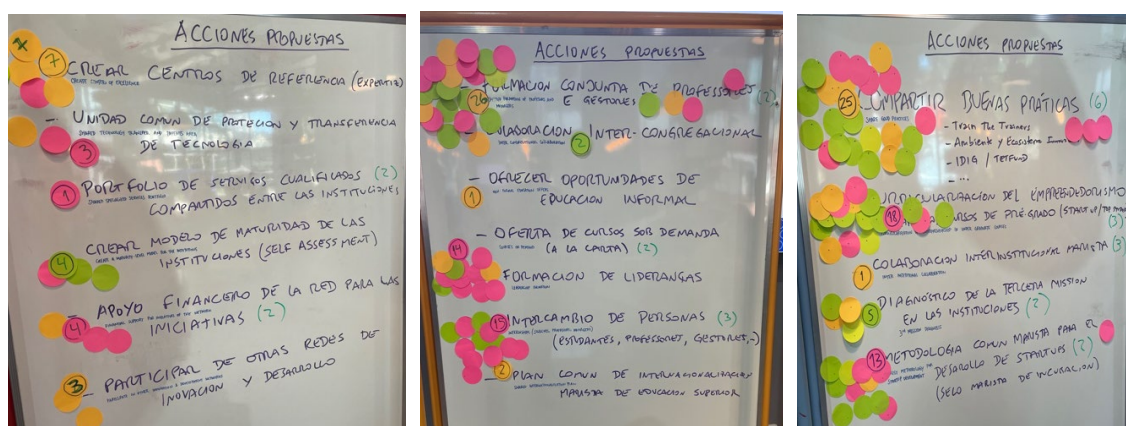 ACCIONES PROPUESTAS
7
7
CREAR CENTROS DE REFERENCIA (EXPERTIZ)
CREATE CENTERS OF EXCELLENCE
- UNIDAD COMUN DE PROTECION Y TRANSFERENCIA
DE TECNOLOGIA
3
1
PORTFOLIO DE SERVICOS CUALIFICADOS (2)
COMPARTIDOS ENTRE LAS INSTITUCIONES
CREAR MODELO DE MATURIDAD DE LAS
INSTITUCIONES (SELF ASSESTMENT)
4
- APOYO FINANCERO DE LA RED PARA LAS
4
INICIATIVAS (2)
3
- PARTICIPAR DE OTRAS REDES DE
INOVACION Y DESARROLLO
ACCIONES PROPUESTAS
- FORMACION CONJUNTA DE PROFESSORES (2)
26
E GESTORES
- COLABORACION INTER-CONGREGACIONAL
2
- OFRECER OPORTUNIDADES DE
1
EDUCACION INFORMAL
- OFERTA DE CURSOS SOB DEMANDA
14
(A LA CARTA) (2)
FORMACION DE LIDERANGAS
15
INTERCAMBIO DE PERSONAS (3)
(ESTUDIANTES, PROFESSORES, GESTORES, -)
2
- PLAN COMUN DE INTERNACIONALIZACION
MARISTA DE EDUCACION SUPERIOR
ACCIONES PROPUESTAS
25
COMPARTIR BUENAS PRÁTICAS (6)
SHARE GOOD PRACTICES
- Train The Trainers
- Ambiente y Ecosistema
- IDIG / TETFUND
- ...
CURRICULARIZACIÓN DEL EMPREENDEDORISMO
18
CURSOS DE PRÉ-GRADO (STARTUP/
(3)
COLABORACIÓN INTERINSTITUCIONAL MARISTA (3)
1
DIAGNÓSTICO DE LA TERCERA MISSION
EN LAS INSTITUCIONES (2)
5
13
METODOLOGIA COMUN MARISTA PARA EL
DESAROLLO DE STARTUPS (2)
(SELO MARISTA DE INCUBACION)